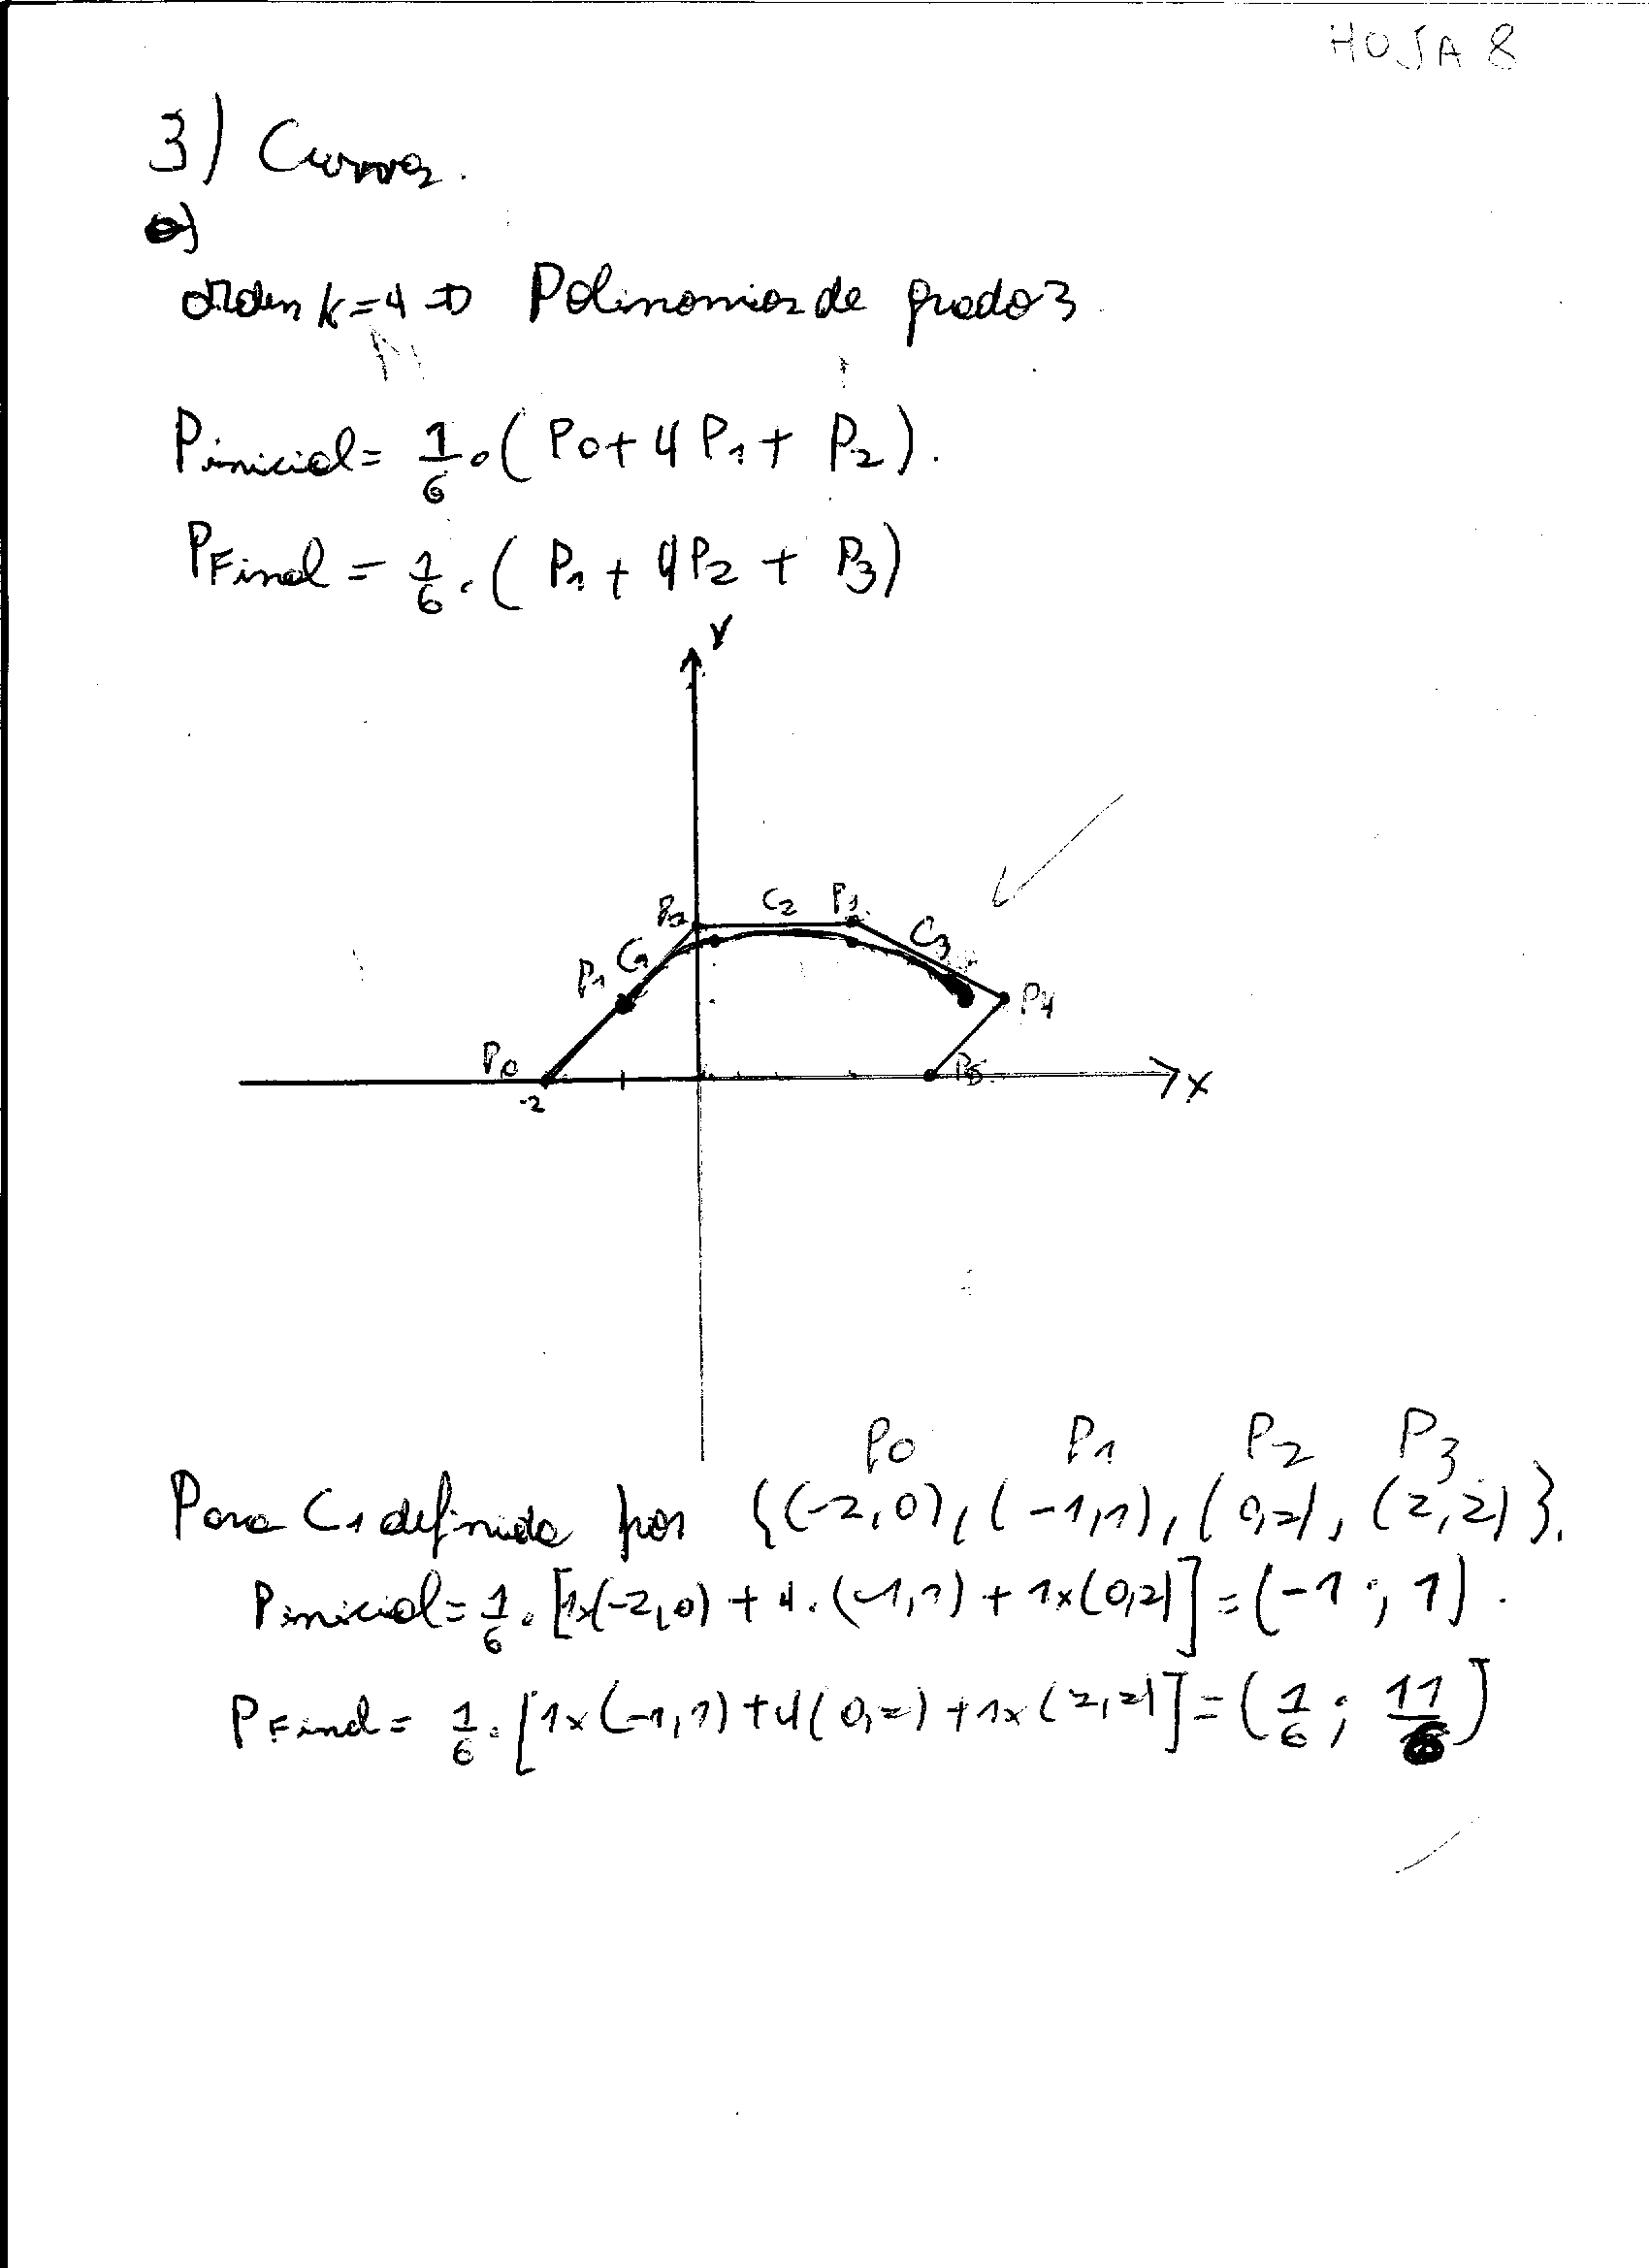 HOJA 8
3) Curvas.
a)
orden k=4 => Polinomios de grado 3
Pinicial = 1/6 . ( P0 + 4 P1 + P2 ).
PFinal = 1/6 . ( P1 + 4P2 + P3 )
Y
P2 C2 P3
P1 C1 C3
P4
P0 P5
-2 X
P0 P1 P2 P3
Para C1 definida por {(-2,0), (-1,1), (0,2), (2,2)}.
Pinicial = 1/6 . [1x(-2,0) + 4 . (-1,1) + 1x(0,2)] = (-1 ; 1) .
PFinal = 1/6 . [1x(-1,1) + 4(0,2) + 1x(2,2)] = (1/6 ; 11/6)